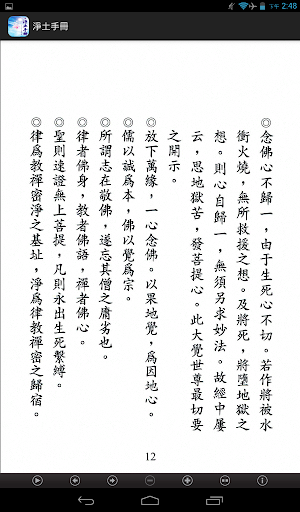 下午 2:48
淨土手冊
◎念佛心不歸一，由于生死心不切。若作將被水
衝火燒，無所救援之想。及將死，將墮地獄之
想。則心自歸一，無須另求妙法。故經中屢
云，思地獄苦，發菩提心。此大覺世尊最切要
之開示。
◎放下萬緣，一心念佛。以果地覺，爲因地心。
◎儒以誠爲本，佛以覺爲宗。
◎所謂志在敬佛，遂忘其僧之庸劣也。
◎律者佛身，教者佛語，禪者佛心。
◎聖則速證無上菩提，凡則永出生死繫縛。
◎律爲教禪密淨之基址，淨爲律教禪密之歸宿。
12